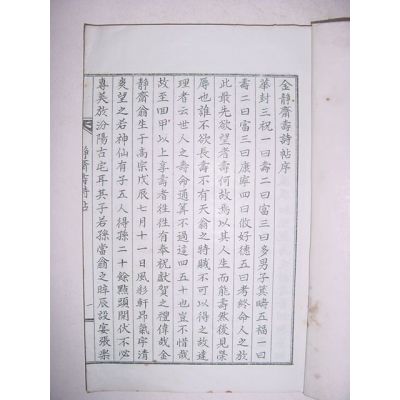 金靜齋壽詩帖序
華封三祝一曰壽二曰富三曰多男子箕疇五福一曰
壽二曰富三曰康寧四曰攸好德五曰考終命人之於
此最先欲望者壽何故焉以其人生而能壽然後見榮
辱也誰不欲長壽不有天翁之特賜不可以得之故達
理者云世人之壽命通算不過這四五十也豈不惜哉
故至四甲以上享壽者往往有奉祝獻賀之禮偉哉金
靜齋翁生于高宗戊辰七月十一日風彩軒昂氣宇清
爽望之若神仙有子五人得孫二十餘點頭開伏不必
專美於汾陽古宅耳其子若孫當翁之晬辰設宴張樂
靜齋壽詩帖
一